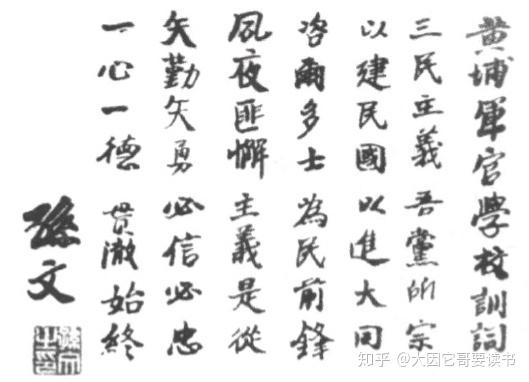 黄埔軍官學校訓詞
三民主義 吾黨所宗
以建民國 以進大同
咨爾多士 為民前鋒
夙夜匪懈 主義是從
矢勤矢勇 必信必忠
一心一德 貫澈始終
孫文
孫文之印
知乎 @大因它哥要读书